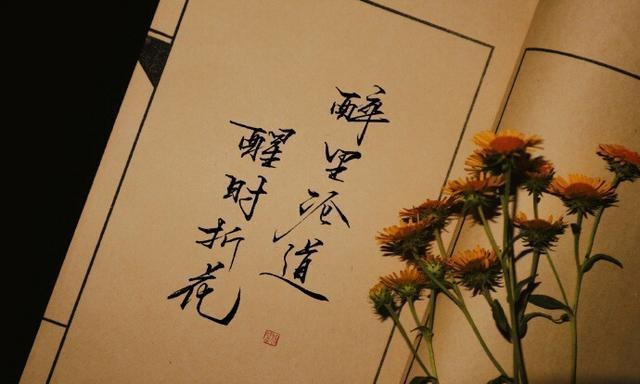 醉里论道
醒时折花